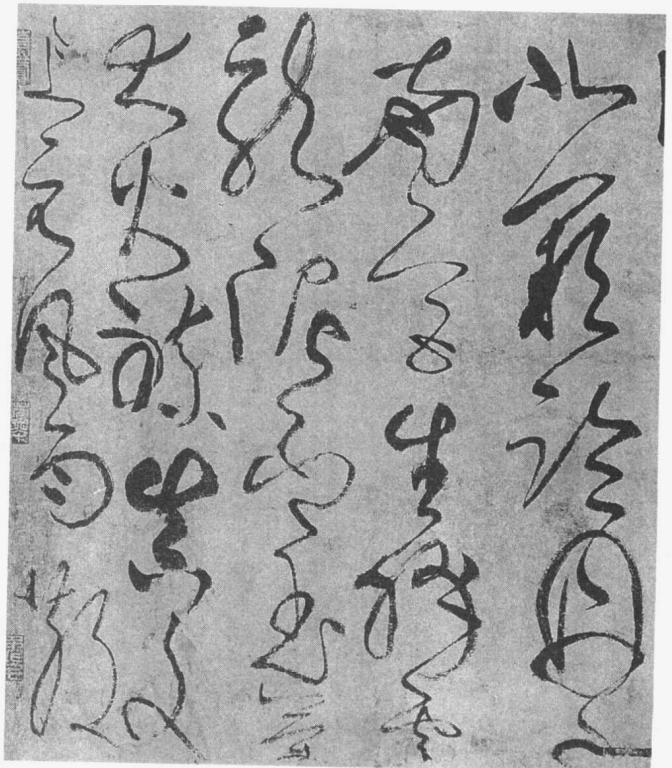 北闕臨丹水
南宮生絳雲
龍泥印玉簡
大火煉真文
上元風雨散